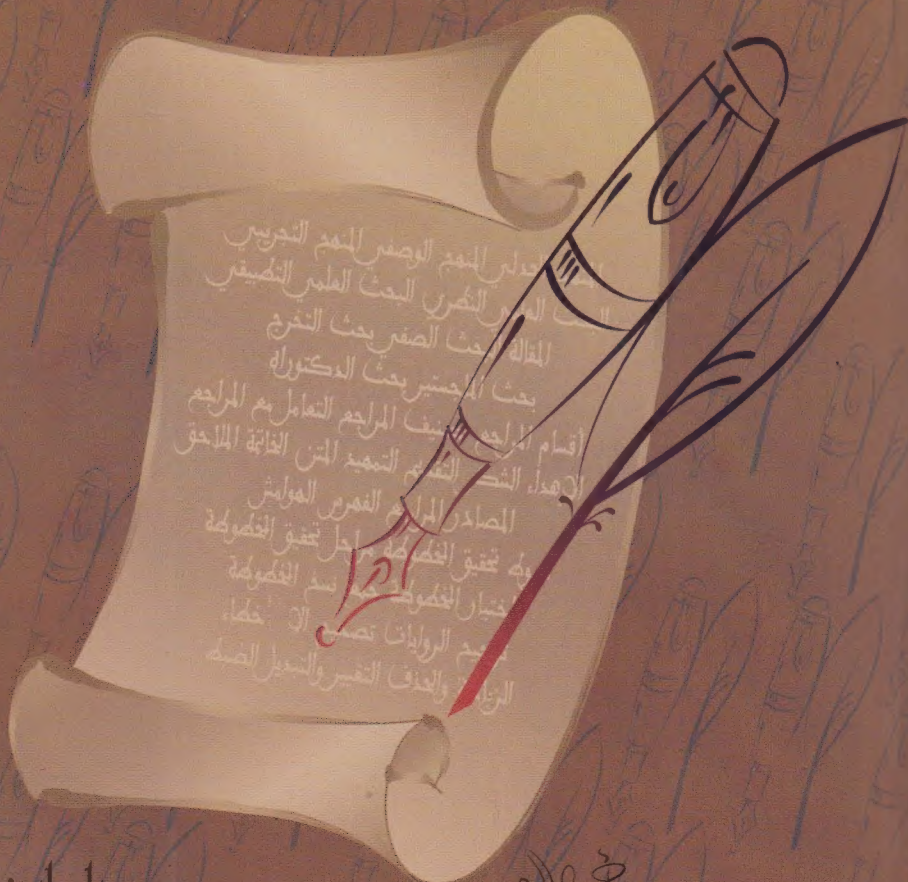 الجدلي المنهج الوصفي المنهج التجريبي
البحث العلمي النظري البحث العلمي التطبيقي
المقالة البحث الصفي بحث التخرج
بحث الماجستير بحث الدكتوراه
أقسام المراجع تصنيف المراجع التعامل مع المراجع
الإهداء الشكر التقديم التمهيد المتن الخاتمة الملاحق
المصادر المراجع الفهرس الهوامش
تحقيق المخطوطة مراحل تحقيق المخطوطة
اختيار المخطوطة نسخ المخطوطة
الروايات الأخطاء
الزيادة والحذف التغيير والتبديل الضبط